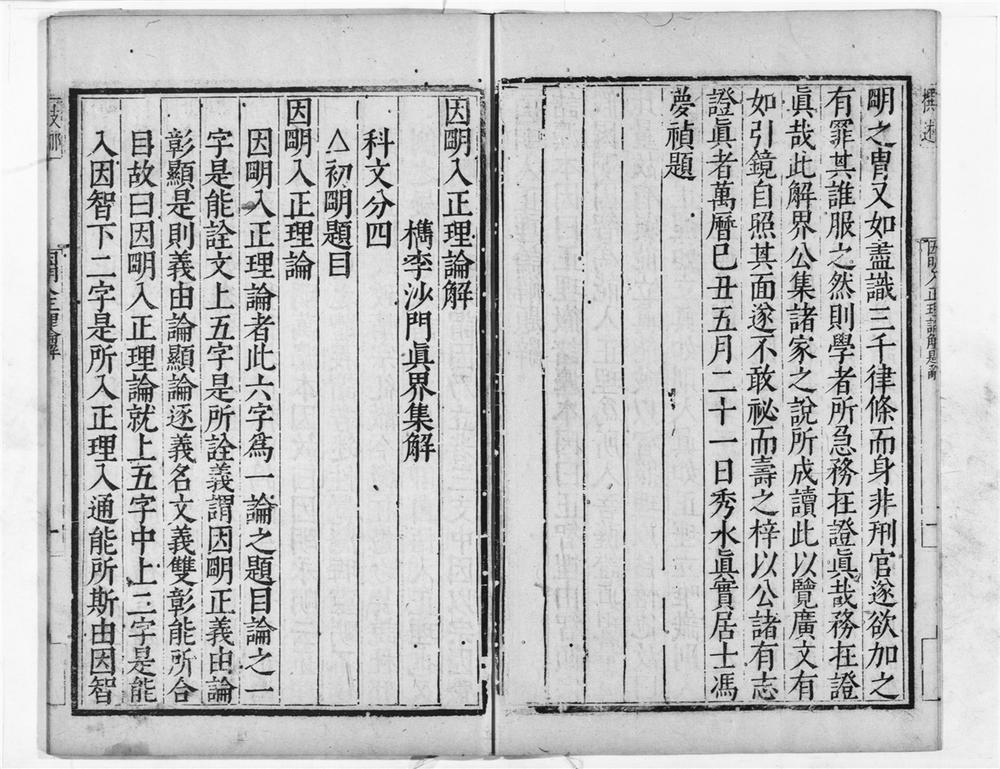 明之冑又如盡識三千律條而身非刑官遂欲加之
有罪其誰服之然則學者所急務在證眞哉務在證
眞哉此解界公集諸家之說所成讀此以覽廣文有
如引鏡自照其面遂不敢祕而壽之梓以公諸有志
證眞者萬曆己丑五月二十一日秀水眞實居士馮
夢禎題
因明入正理論解
檇李沙門眞界集解
科文分四
△初明題目
因明入正理論
因明入正理論者此六字爲一論之題目論之一
字是能詮文上五字是所詮義謂因明正義由論
彰顯是則義由論顯論逐義名文義雙彰能所合
目故曰因明入正理論就上五字中上二字是能
入因智下二字是所入正理入通能所斯由因智